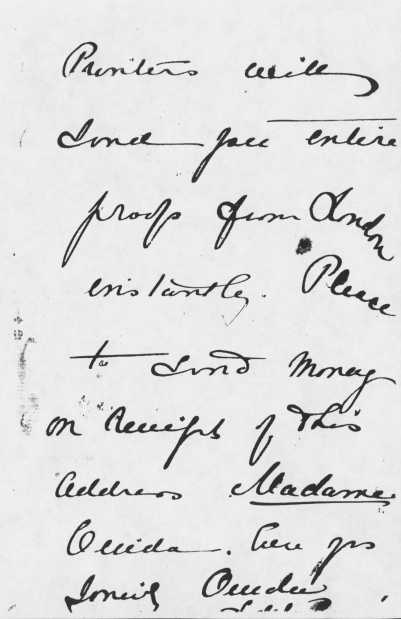 Printers will
send you entire
proofs from London
instantly. Please
to send money
on receipt of this
Address Madame
Ouida.
Ouida